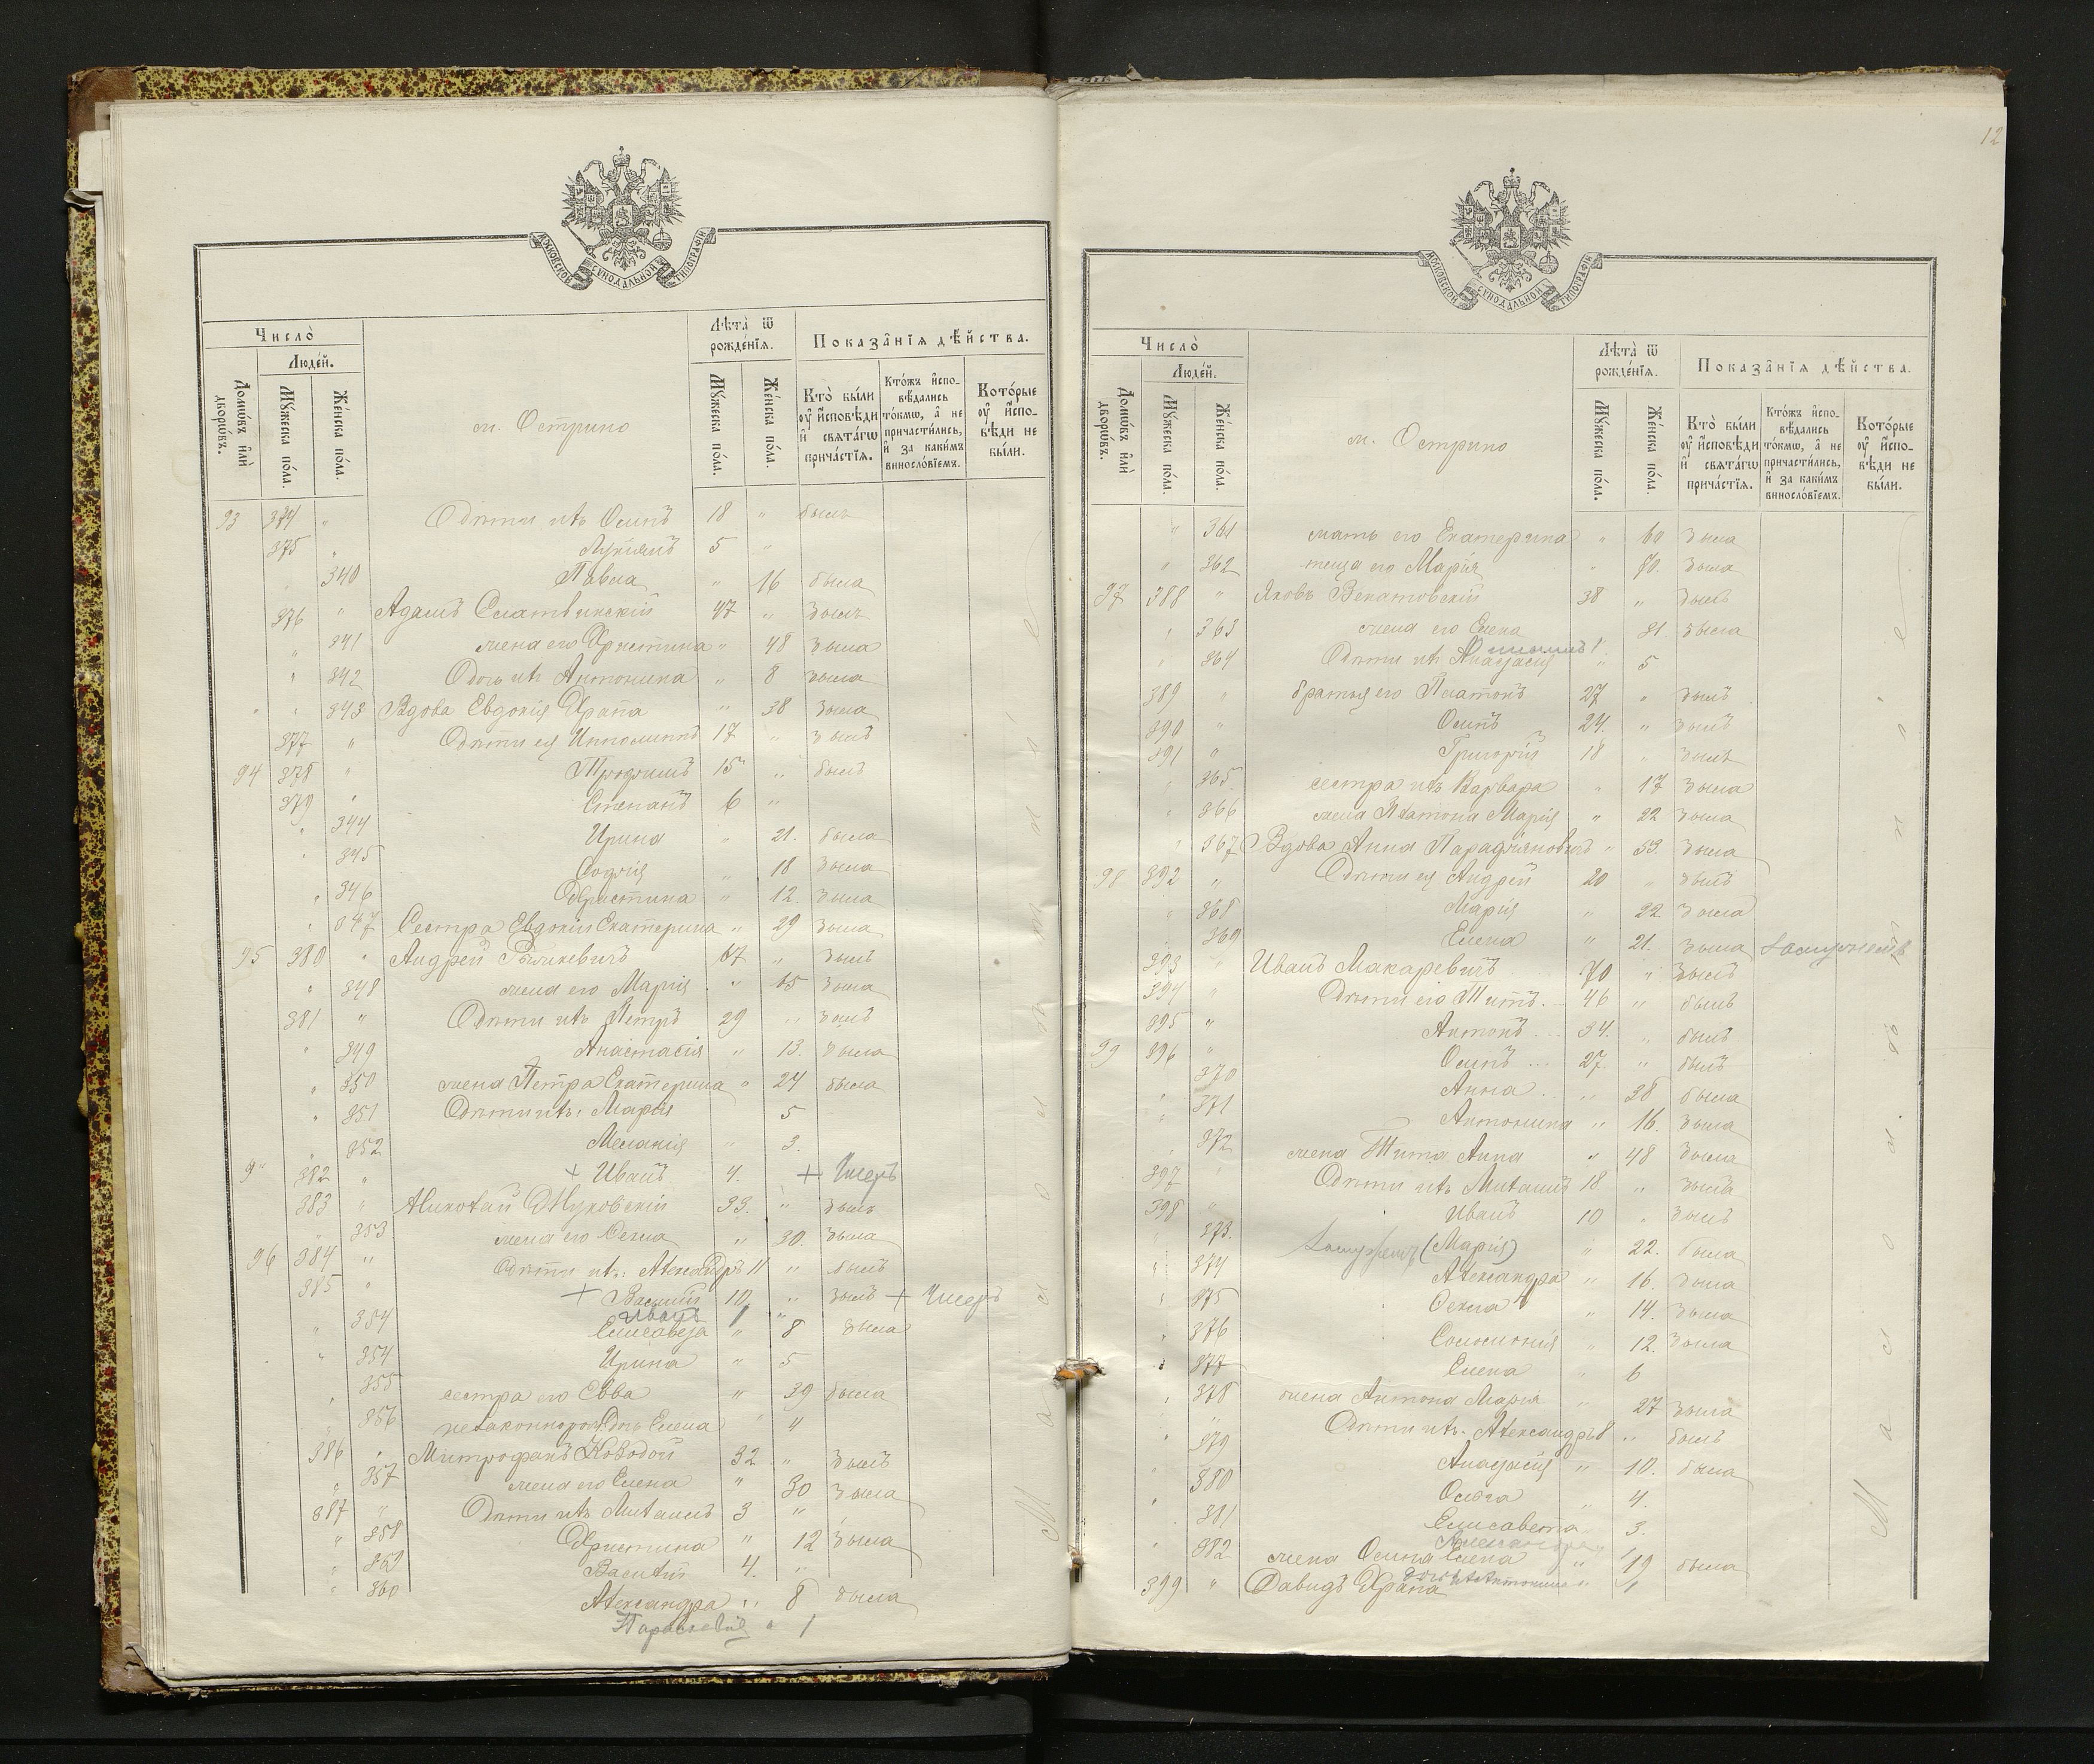 МОСКОВСКОЙ СѴНОДАЛЬНОЙ ТИПОГРАФІИ
Число̀
Люде́й.
Домѡ́въ и҆лѝ дворѡ́въ.
Мꙋ́жеска по́ла.
Же́нска по́ла.
м. Острино
Лѣта̀ ѿ рожде́нїѧ.
Мꙋ́жеска по́ла.
Же́нска по́ла.
Показа̑нїѧ дѣ́йства.
Кто̀ бы́ли ᲂу҆ и҆́сповѣди и҆ свѧта́гѡ прича́стїѧ.
Кто́жъ и҆спо- вѣ́дались то́кмѡ, а҆ не причасти́лись, и҆ за каки́мъ винословїемъ.
Кото́рые ᲂу҆ и҆́спо- вѣди не бы́ли.
93 374 " Дѣти ихъ Осипъ 18 " былъ
375 " Лукіанъ 5 "
" 340 Павла " 16 была
376 " Адамъ Слатвинскій 47 " былъ
" 341 жена его Христина " 48 была
" 342 Дочь ихъ Антонина " 8 была
" " 343 Вдова Евдокія Храпа " 38 была
377 " Дѣти ея Ипполитъ 17 " былъ
94 378 " Трофимъ 15 " былъ
379 " Степанъ 6 "
" 344 Ирина " 21. была
" 345 Софія " 18 была
" 346 Христина " 12. была
" 347 Сестра Евдокіи Екатерина " 29 была
95 380 " Андрей 67 " былъ
" 348 жена его Марія " 65 была
381 " Дѣти ихъ Петръ 29 " былъ
" 349 Анастасія " 13. была
" 350 жена Петра Екатерина " 24 была
" 351 Дѣти ихъ: Марія 5
" 352 Меланія " 3.
9" 382 " + Иванъ 4. + Умеръ
383 " Николай Жуковскій 33. " былъ
" 353 жена его Ѳекла " 30. была
96 384 " Дѣти ихъ: Александръ 11 " былъ
385 " + Василій 10 " былъ + Умеръ
Иванъ 1 "
" 354 Елисавета " 8 была
" 354 Ирина " 5
" 355 сестра его Евва " 39 была
" 356 незаконнорож. дочь Елена " "
386 " Митрофанъ 32 " былъ
" 357 жена его Елена " 30 была
387 " Дѣти ихъ Михаилъ 3 "
" 358 Христина " 12 была
" 359 Василій 4. "
" 360 Александра " 8 была
Параскевія " 1
12
МОСКОВСКОЙ СѴНОДАЛЬНОЙ ТИПОГРАФІИ
Число̀
Люде́й.
Домѡ́въ и҆лѝ дворѡ́въ.
Мꙋ́жеска по́ла.
Же́нска по́ла.
м. Острино
Лѣта̀ ѿ рожде́нїѧ.
Мꙋ́жеска по́ла.
Же́нска по́ла.
Показа̑нїѧ дѣ́йства.
Кто̀ бы́ли ᲂу҆ и҆́сповѣди и҆ свѧта́гѡ прича́стїѧ.
Кто́жъ и҆спо- вѣ́дались то́кмѡ, а҆ не причасти́лись, и҆ за каки́мъ винословїемъ.
Кото́рые ᲂу҆ и҆́спо- вѣди не бы́ли.
" 361 мать его Екатерина " 60 была
" 362 теща его Марія " 70. была
97 388 " Яковъ 38 " былъ
" 363 жена его Елена 31. была
" 364 Дѣти ихъ Анастасія " 5
389 " братья его Платонъ 27 " былъ
390 " Осипъ 24. " былъ
391 " Григорій 18 " былъ
" 365 сестра ихъ Варвара " 17 была
" 366 жена Платона Марія " 22 была
" 367 Вдова Анна " 53. была
98 392 " Дѣти ея Андрей 20 " былъ
" 368 Марія " 22 была
" 369 Елена " 21. была Замужемъ
393 " Иванъ Макаревичъ 70 " былъ
394 " Дѣти его Титъ 46 " былъ
395 " Антонъ 34. " былъ
99 396 " Осипъ 27 " былъ
370 Анна " 38 была
" 371 Антонина " 16. была
" 372 жена Тита Анна " 48 была
397 " Дѣти ихъ Михаилъ 18 " былъ
398 " Иванъ 10 " былъ
" 373. Замужемъ (Марія) " 22. была
" 374 Александра " 16. была
" 375 Ѳекла " 14. была
" 376 Соломонія " 12. была
" 377 Елена " 6
" 378 жена Антона Марія " 27 была
" " Дѣти ихъ: Александръ 8 " былъ
" 379 Анастасія " 10. была
" 380 Ольга " 4.
" 381 Елисавета 3.
" 382 жена Осипа Елена " 19 была
399 " Давидъ Храпа